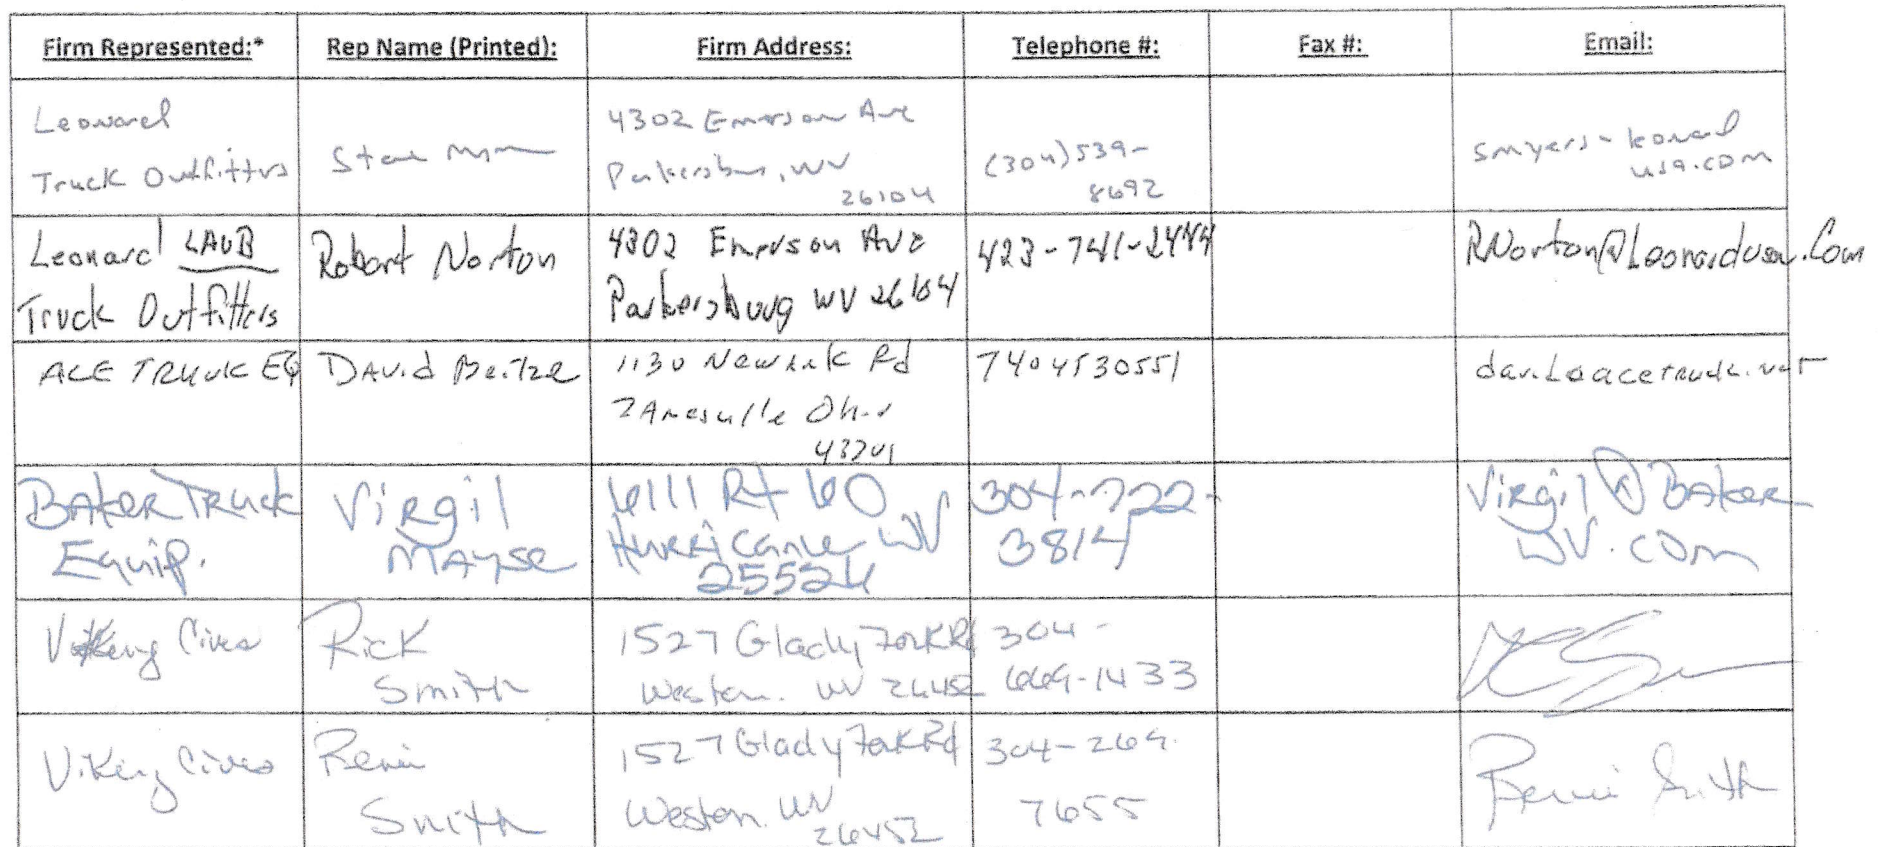 Firm Represented:* Rep Name (Printed): Firm Address: Telephone #: Fax #: Email:
Leonard
Truck Outfitters
4302 Emerson Ave
Parkersburg, WV
26104
(304) 539-
8692
smyers-
usa.com
Leonard LAUB
Truck Outfitters
Robert Norton
4302 Emerson Ave
Parkersburg WV 26104
423-741-2444
RNorton@Leonardusa.Com
ACE TRUCK EQ
DAVid
1130 Newark Rd
ZAnesville Ohio
43701
7404530551
Baker Truck
Equip.
Virgil
Mayse
6111 Rt 60
Hurricane WV
25526
304-722-
3814
Virgil@Baker
WV.com
Viking Cives
Rick
Smith
1527 Glady Fork Rd
Weston. WV 26452
304-
669-1433
Viking Cives
Smith
1527 Glady Fork Rd
Weston. WV
26452
304-269-
7655
Smith